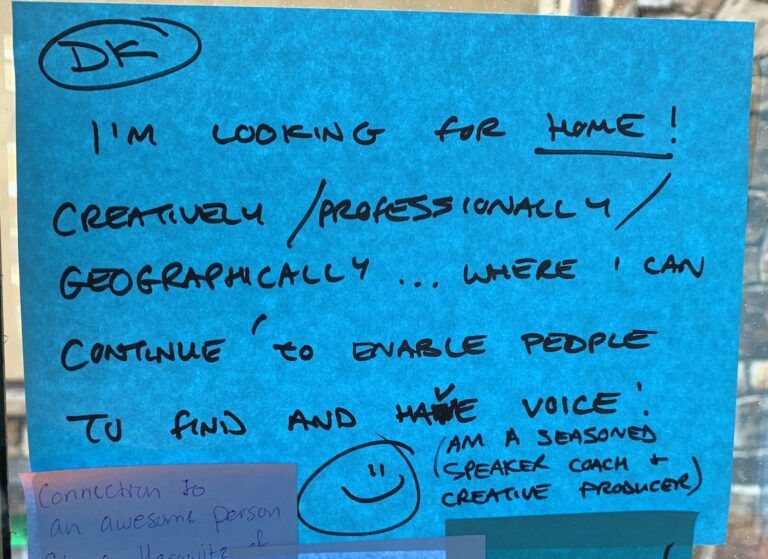 DK
I'M LOOKING FOR HOME!
CREATIVELY / PROFESSIONALLY /
GEOGRAPHICALLY ... WHERE I CAN
CONTINUE TO ENABLE PEOPLE
TO FIND AND HAVE VOICE!
(AM A SEASONED
SPEAKER COACH +
CREATIVE PRODUCER)
Connection to
an awesome person